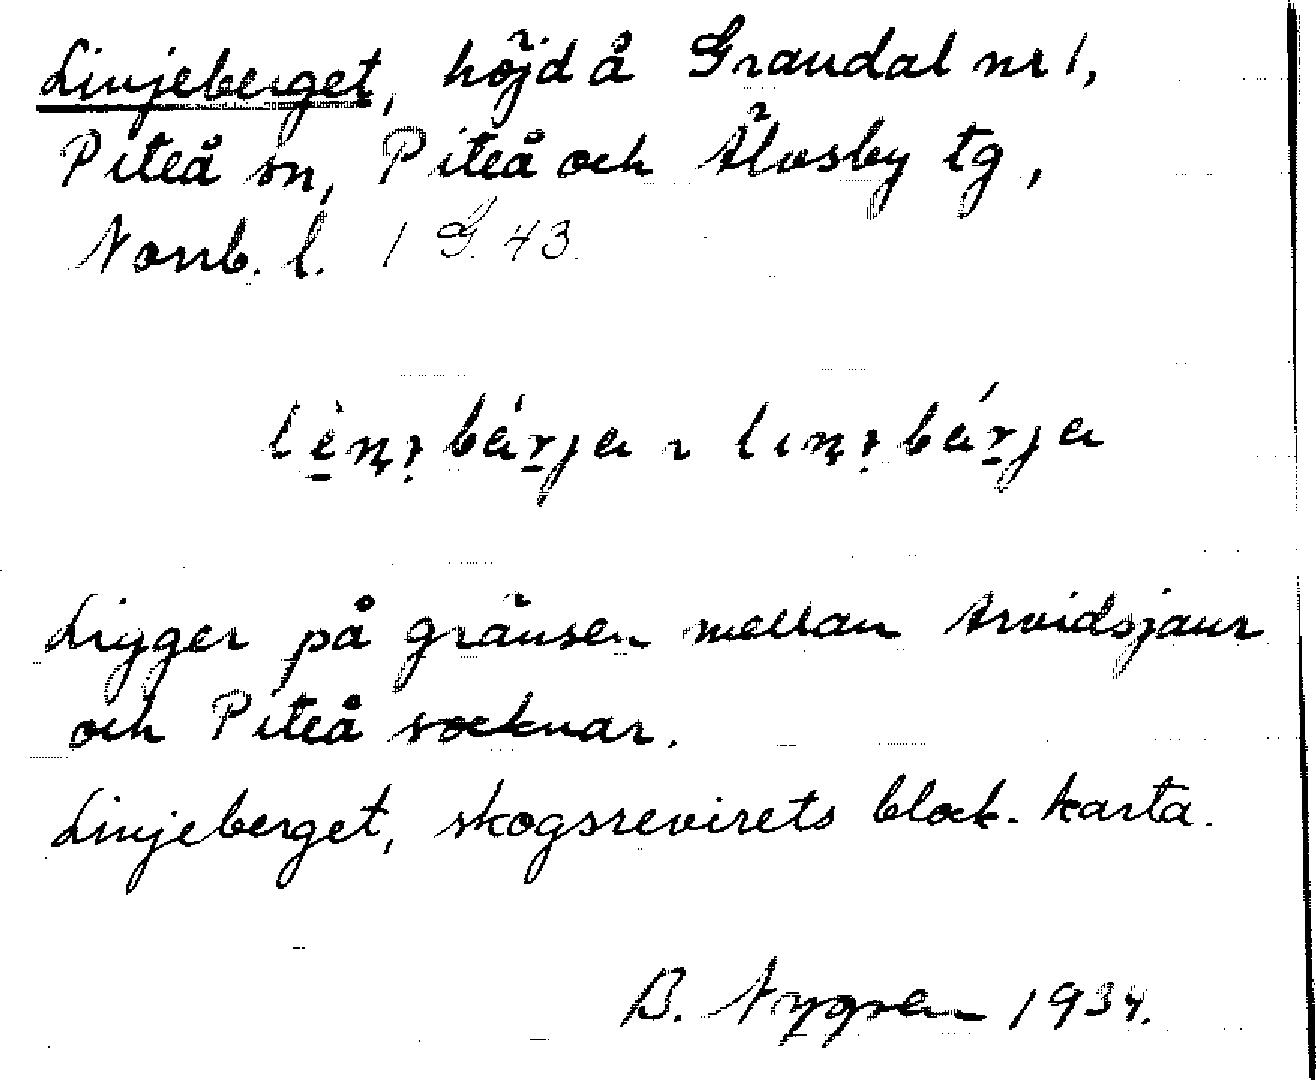 Linjeberget, höjd å Grandal nr 1,
Piteå sn, Piteå och Älvsby tg,
Norrb. l. 1 G. 43.
Ligger på gränsen mellan Arvidsjaur
och Piteå socknar.
Linjeberget, skogsrevirets block-karta.
B. Nygren 1934.